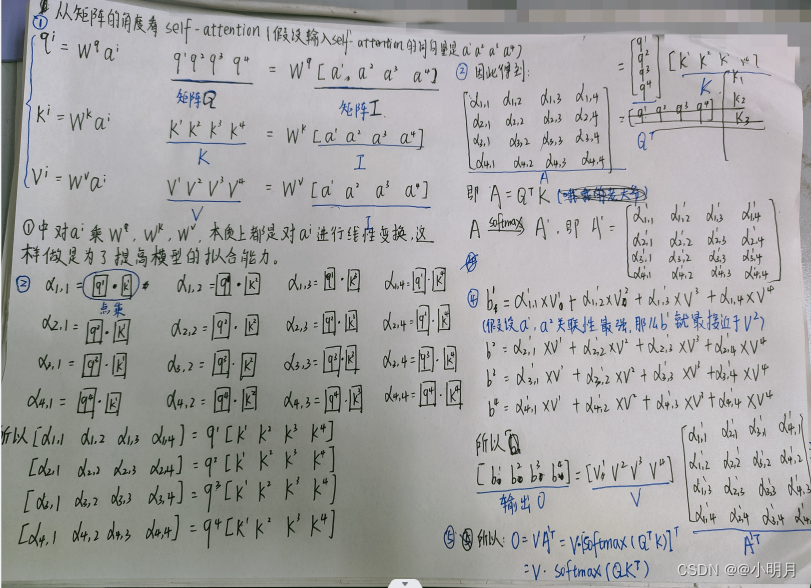 ① 从矩阵的角度看 self-attention (假设输入self-attention的向量是a¹ a² a³ a⁴)
qⁱ = W^q aⁱ
q¹ q² q³ q⁴ = W^q [a¹, a² a³ a⁴]
矩阵Q 矩阵I
Kⁱ = W^k aⁱ
K¹ K² K³ K⁴ = W^k [a¹ a² a³ a⁴]
K I
Vⁱ = W^v aⁱ
V¹ V² V³ V⁴ = W^v [a¹ a² a³ a⁴]
V I
①中对aⁱ乘 W^q, W^k, W^v, 本质上都是对aⁱ进行线性变换,这
样做是为了提高模型的拟合能力。
② α1,1 = q¹·k¹ α1,2 = q¹·K² α1,3 = q¹·K³ α1,4 = q¹·K⁴
点乘
α2,1 = q²·K¹ α2,2 = q²·K² α2,3 = q²·K³ α2,4 = q²·K⁴
α3,1 = q³·K¹ α3,2 = q³·K² α3,3 = q³·K³ α3,4 = q³·K⁴
α4,1 = q⁴·K¹ α4,2 = q⁴·K² α4,3 = q⁴·K³ α4,4 = q⁴·K⁴
所以 [α1,1 α1,2 α1,3 α1,4] = q¹ [K¹ K² K³ K⁴]
[α2,1 α2,2 α2,3 α2,4] = q² [K¹ K² K³ K⁴]
[α3,1 α3,2 α3,3 α3,4] = q³ [K¹ K² K³ K⁴]
[α4,1 α4,2 α4,3 α4,4] = q⁴ [K¹ K² K³ K⁴]
③ 因此得到:
α1,1 α1,2 α1,3 α1,4
α2,1 α2,2 α2,3 α2,4
α3,1 α3,2 α3,3 α3,4
α4,1 α4,2 α4,3 α4,4
A
= [q¹ q² q³ q⁴] [K¹ K² K³ K⁴]
K
= [q¹ q² q³ q⁴] K1 K2 K3
Q^T
即 A = Q^T K
A softmax→ A', 即 A' =
α'1,1 α'1,2 α'1,3 α'1,4
α'2,1 α'2,2 α'2,3 α'2,4
α'3,1 α'3,2 α'3,3 α'3,4
α'4,1 α'4,2 α'4,3 α'4,4
④ b¹ = α'1,1 × V¹ + α'1,2 × V² + α'1,3 × V³ + α'1,4 × V⁴
(假设a¹, a²关联性最强,那么b¹就最接近于V²)
b² = α'2,1 × V¹ + α'2,2 × V² + α'2,3 × V³ + α'2,4 × V⁴
b³ = α'3,1 × V¹ + α'3,2 × V² + α'3,3 × V³ + α'3,4 × V⁴
b⁴ = α'4,1 × V¹ + α'4,2 × V² + α'4,3 × V³ + α'4,4 × V⁴
所以
[b¹ b² b³ b⁴] = [V¹ V² V³ V⁴]
输出O V
α'1,1 α'2,1 α'3,1 α'4,1
α'1,2 α'2,2 α'3,2 α'4,2
α'1,3 α'2,3 α'3,3 α'4,3
α'1,4 α'2,4 α'3,4 α'4,4
A'^T
⑤ 所以: O = VA'^T = V·[softmax(Q^T K)]^T
= V · softmax(QK^T)
CSDN @@小明月